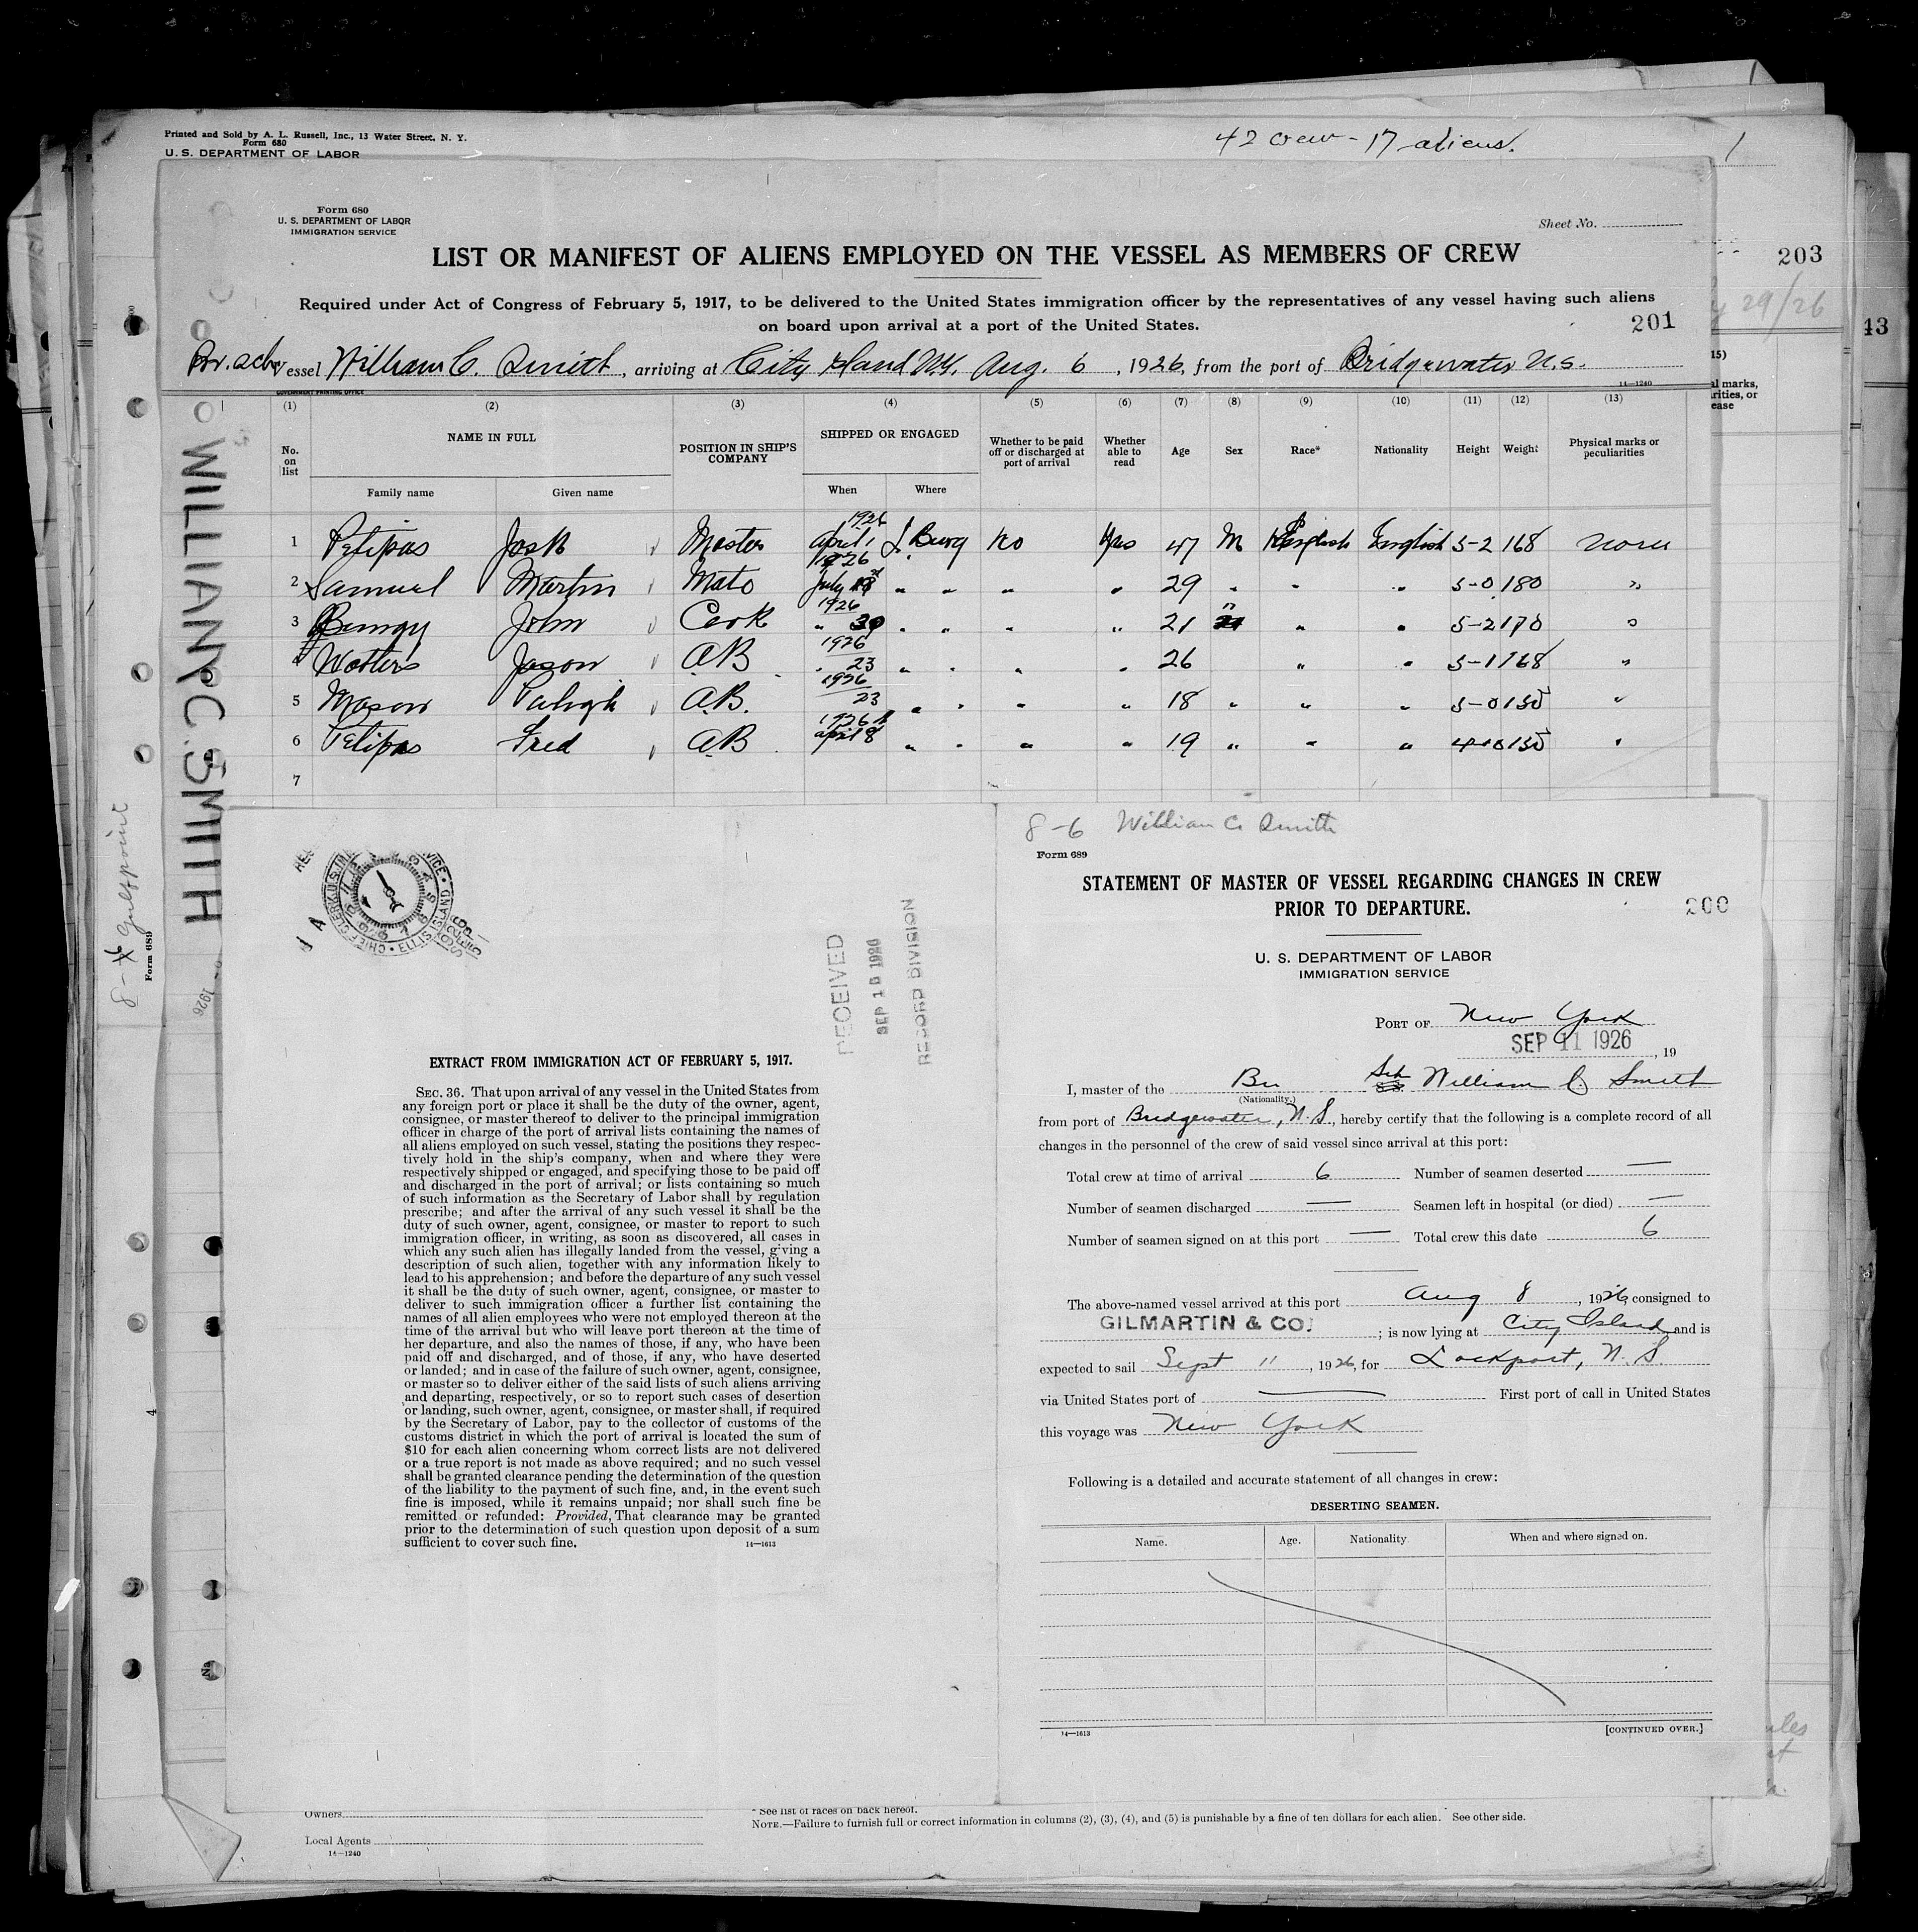 Printed and Sold by A. L. Russell, Inc., 13 Water Street, N. Y.
Form 680
U. S. DEPARTMENT OF LABOR
42 crew - 17 aliens.
Form 680
U. S. DEPARTMENT OF LABOR
IMMIGRATION SERVICE
Sheet No.
LIST OR MANIFEST OF ALIENS EMPLOYED ON THE VESSEL AS MEMBERS OF CREW
203
Required under Act of Congress of February 5, 1917, to be delivered to the United States immigration officer by the representatives of any vessel having such aliens
on board upon arrival at a port of the United States.
201
29/26
13
Br. schr Vessel William C. Smith, arriving at City Island N.Y. Aug. 6, 1926, from the port of Bridgewater N.S.
14—1240
GOVERNMENT PRINTING OFFICE
(1) (2) (3) (4) (5) (6) (7) (8) (9) (10) (11) (12) (13)
No. on list
NAME IN FULL
Family name Given name
POSITION IN SHIP'S COMPANY
SHIPPED OR ENGAGED
When Where
Whether to be paid off or discharged at port of arrival
Whether able to read
Age Sex Race* Nationality Height Weight
Physical marks or peculiarities
1 Petipas Master 1926 April 1 L. Burg No Yes 47 M English English 5-2 168 None
2 Samuel Martin Mate 1926 July " " " " 29 " " " 5-0 180 "
3 John Cook 1926 " 30 " " " " 21 " " " 5-2 170 "
4 Jason A.B. 1926 " 23 " " " " 26 " " 5-1 168 "
5 Mason A.B. 1926 23 " " " " 18 " " " 5-0 135 "
6 Petipas Fred A.B. 1926 April 8 " " " " 19 " " " 135 "
7
WILLIAM C. SMITH
1926
Form 689
RECEIVED
SEP 1926
RECORD DIVISION
EXTRACT FROM IMMIGRATION ACT OF FEBRUARY 5, 1917.
SEC. 36. That upon arrival of any vessel in the United States from
any foreign port or place it shall be the duty of the owner, agent,
consignee, or master thereof to deliver to the principal immigration
officer in charge of the port of arrival lists containing the names of
all aliens employed on such vessel, stating the positions they respec-
tively hold in the ship's company, when and where they were
respectively shipped or engaged, and specifying those to be paid off
and discharged in the port of arrival; or lists containing so much
of such information as the Secretary of Labor shall by regulation
prescribe; and after the arrival of any such vessel it shall be the
duty of such owner, agent, consignee, or master to report to such
immigration officer, in writing, as soon as discovered, all cases in
which any such alien has illegally landed from the vessel, giving a
description of such alien, together with any information likely to
lead to his apprehension; and before the departure of any such vessel
it shall be the duty of such owner, agent, consignee, or master to
deliver to such immigration officer a further list containing the
names of all alien employees who were not employed thereon at the
time of the arrival but who will leave port thereon at the time of
her departure, and also the names of those, if any, who have been
paid off and discharged, and of those, if any, who have deserted
or landed; and in case of the failure of such owner, agent, consignee,
or master so to deliver either of the said lists of such aliens arriving
and departing, respectively, or so to report such cases of desertion
or landing, such owner, agent, consignee, or master shall, if required
by the Secretary of Labor, pay to the collector of customs of the
customs district in which the port of arrival is located the sum of
$10 for each alien concerning whom correct lists are not delivered
or a true report is not made as above required; and no such vessel
shall be granted clearance pending the determination of the question
of the liability to the payment of such fine, and, in the event such
fine is imposed, while it remains unpaid; nor shall such fine be
remitted or refunded: Provided, That clearance may be granted
prior to the determination of such question upon deposit of a sum
sufficient to cover such fine.
14—1613
8-6 William C. Smith
Form 689
STATEMENT OF MASTER OF VESSEL REGARDING CHANGES IN CREW
PRIOR TO DEPARTURE.
200
U. S. DEPARTMENT OF LABOR
IMMIGRATION SERVICE
PORT OF New York
SEP 11 1926, 19
I, master of the Br Sch William C. Smith
(Nationality.)
from port of Bridgewater, N.S., hereby certify that the following is a complete record of all
changes in the personnel of the crew of said vessel since arrival at this port:
Total crew at time of arrival 6 Number of seamen deserted —
Number of seamen discharged — Seamen left in hospital (or died) —
Number of seamen signed on at this port — Total crew this date 6
The above-named vessel arrived at this port Aug 8, 1926, consigned to
GILMARTIN & CO. ; is now lying at City Island and is
expected to sail Sept 11, 1926, for Lockport, N. S
via United States port of — First port of call in United States
this voyage was New York
Following is a detailed and accurate statement of all changes in crew:
DESERTING SEAMEN.
Name. Age. Nationality When and where signed on.
14—1613
[CONTINUED OVER.]
Owners
* See list of races on back hereof.
NOTE.—Failure to furnish full or correct information in columns (2), (3), (4), and (5) is punishable by a fine of ten dollars for each alien. See other side.
Local Agents
14—1240